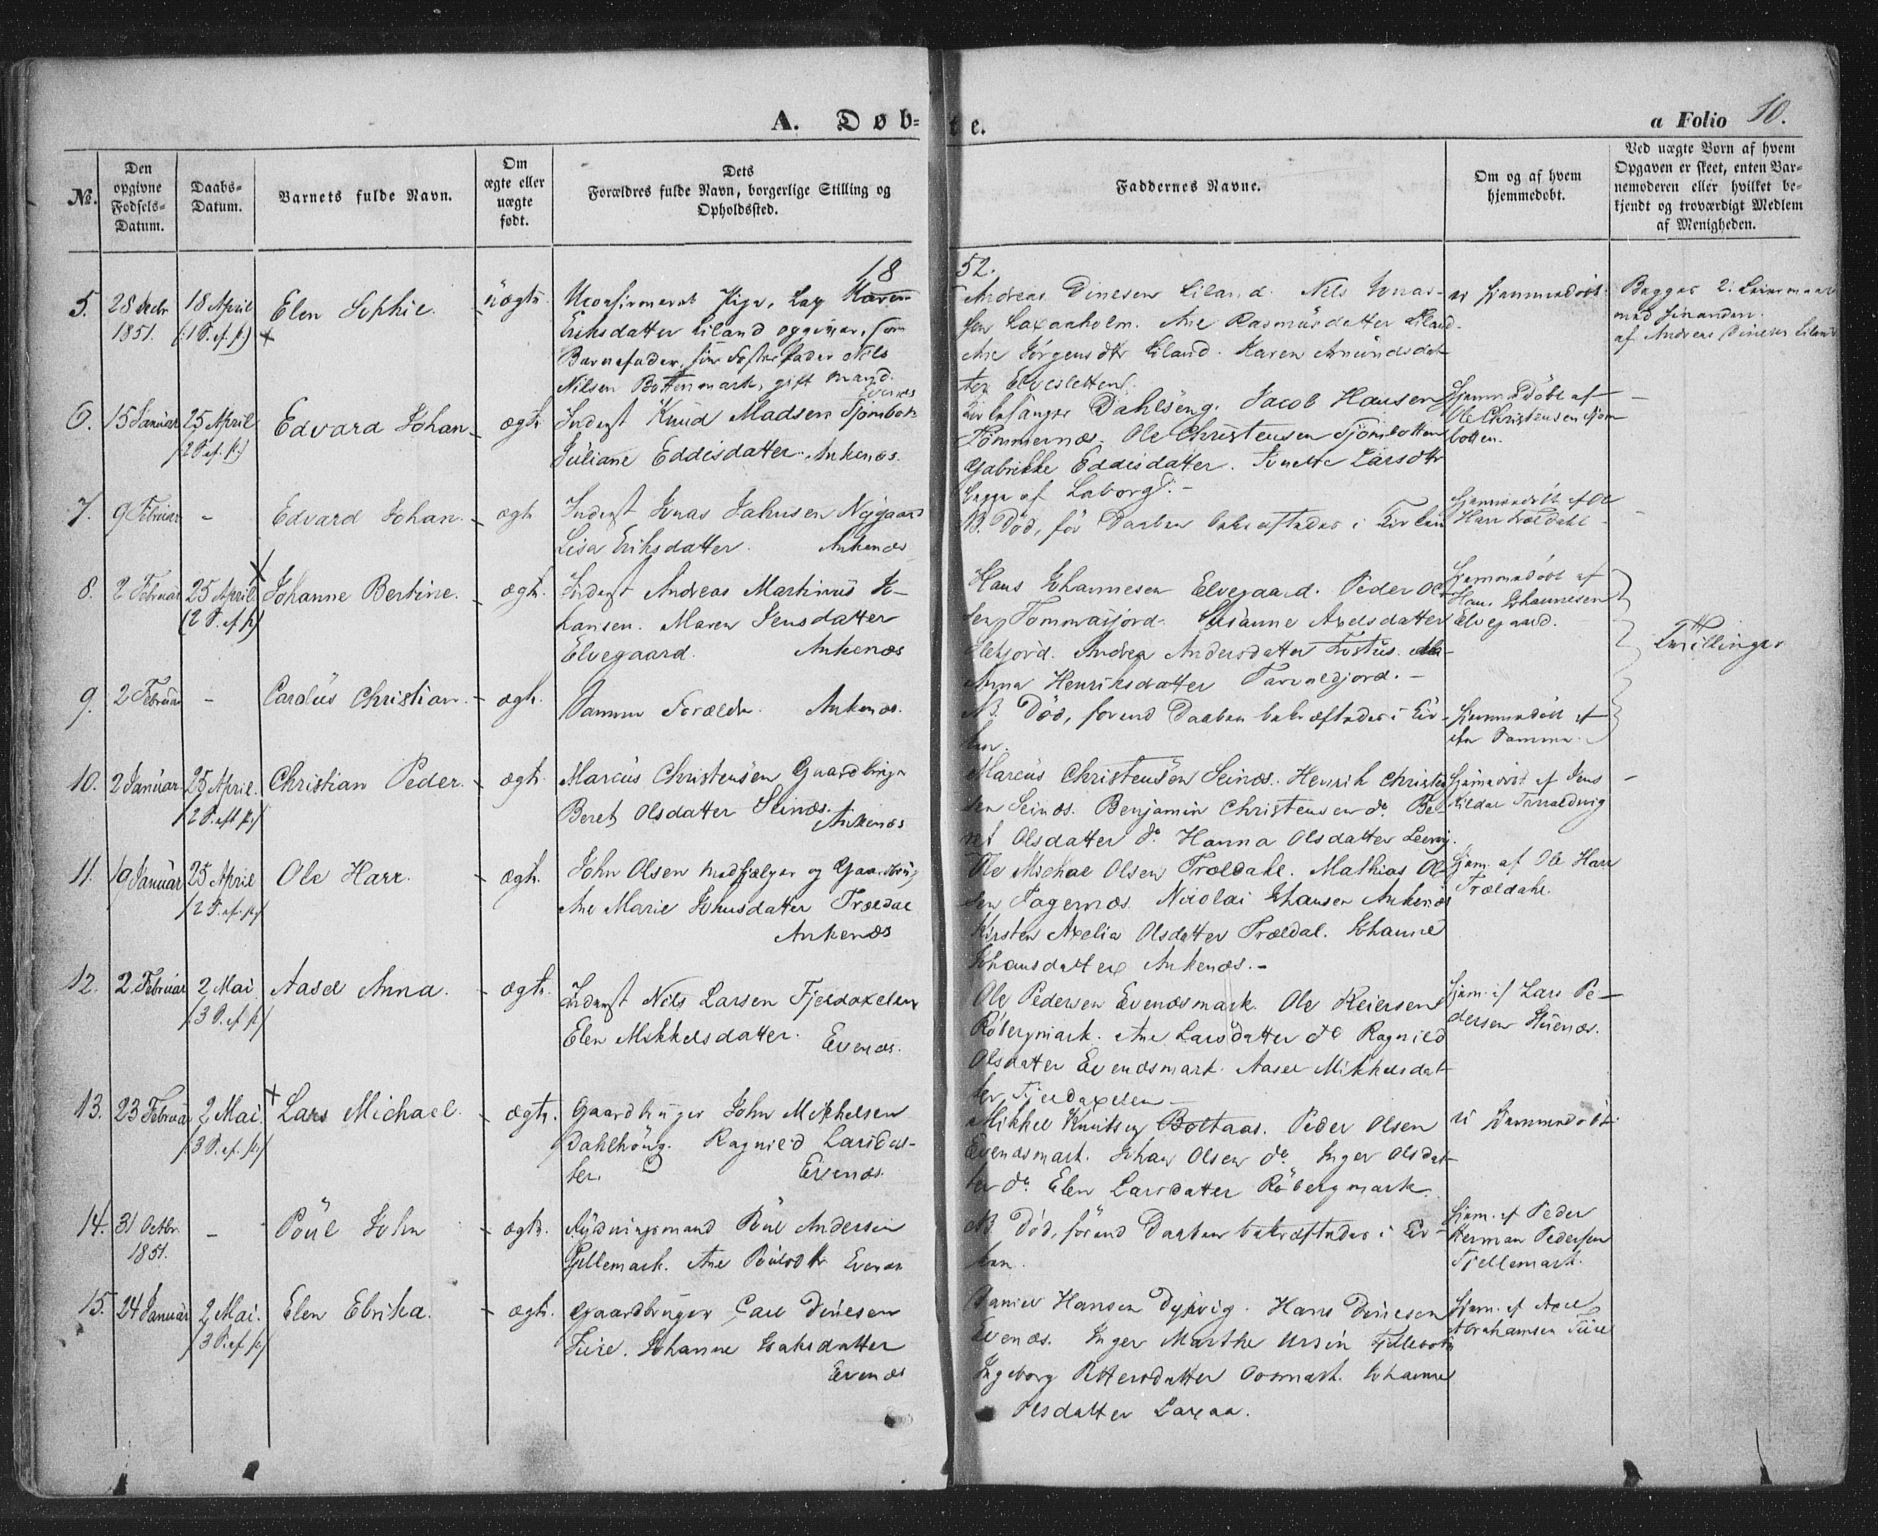 A. Døb=
te.
a Folio 10.
№.
Den opgivne Fødsels-Datum.
Daabs-Datum.
Barnets fulde Navn.
Om ægte eller uægte født.
Dets
Forældres fulde Navn, borgerlige Stilling og
Opholdssted.
Faddernes Navne.
Om og af hvem
hjemmedøbt.
Ved uægte Børn af hvem
Opgaven er skeet, enten Bar-
nemoderen eller hvilket be-
kjendt og troværdigt Medlem
af Menigheden.
1852.
5. 28 Decbr 1851. 18 April (1 P. ef. p.) Elen Sophie. uægte
Uconfirmeret Pige, Lap Karen
Eriksdatter Liland opgiver, som
Barnefader, sin Fosterfader Nils
Nilsen Bottenmark, gift Mand.
Evenæs
Andreas Dinesen Liland. Nils Jonas-
sen Laxaaholm. Ane Rasmusdatter Liland.
Ane Jørgensdtr Liland. Karen Amundsdat-
ter Elvesletten.
ei hjemmedøbt.
Begges 2. Leiermaal
med hinanden.
af Andreas Dinesen Liland
6. 15 Januar 25 April (2 P. ef. p.) Edvard Johan ægte
Inderst Knud Madsen Sjombotn
Juliane Eddisdatter. Ankenæs.
Kirkesanger Dahlseng. Jacob Hansen
Tømmernæs. Ole Christensen Sjombotten
Gabrikke Eddisdatter. Larsdtr
begge af Laborg.
Hjemmedøbt af
Ole Christensen Sjom
botten.
7. 9 Februar - Edvard Johan. ægte
Inderst Jonas Johnsen Nygaard
Lisa Eriksdatter. Ankenæs
NB. Død, før Daaben bekræftedes i Kirken
Hjemmedøbt af Ole
Harr Trældahl
8. 2 Februar 25 April (2 P. ef. p.) Johanne Bertine. ægte.
Inderst Andreas Martinus Jo-
hansen. Maren Jensdatter
Elvegaard. Ankenæs
Hans Johannesen Elvegaard. Peder Ol-
sen Tommasjord. Susanne Axelsdatter
Andrea Andersdatter
Anna Henriksdatter
Hjemmedøbt af
Hans Johannesen
Elvegaard.
Tvillinger
9. 2 Februar - Carolus Christian. ægte.
Samme Forældre. Ankenæs.
NB. Død, førend Daaben bekræftedes i Kir-
ken.
Hjemmedøbt af
den Samme.
10. 2 Januar 25 April. (2 P. eft. p.) Christian Peder. ægte.
Marcus Christensen Gaardbruger
Beret Olsdatter Seinæs.
Ankenæs
Marcus Christensen Seinæs. Henrik Christen
sen Seinæs. Benjamin Christensen do. Be-
ret Olsdatter do. Hanna Olsdatter
Hjemmedøbt af Jens
11. 10 Januar 25 April (2 P. ef. p.) Ole Harr. ægte.
John Olsen Medhjælper og Gaardbrug
Ane Marie Johnsdatter Trældal
Ankenæs
Ole Michael Olsen Trældahl. Mathias Ol-
sen Fagernæs. Nicolai Johansen Ankenæs
Kirsten Axelia Olsdatter Trældal. Johanne
Johansdatter Ankenæs.-
Hjem. af Ole Harr
Trældahl.
12. 2 Februar 2 Mai. (3 P. ef. p.) Aasel Anna. ægte.
Inderst Nils Larsen Fjeldaxelen
Elen Mikkelsdatter. Evenæs.
Ole Pedersen Evenæsmark. Ole Reiersen
Røbergmark. Ane Larsdatter do Ragnild
Olsdatter Evenæsmark. Aasel Mikkelsdat-
ter Fjeldaxelen-
Hjem. af Lars Pe-
dersen
13. 23 Februar 2 Mai (3 P. ef. p.) Lars Michael. ægte.
Gaardbruger John Mikkelsen
Dahlhaug. Ragnild Larsdat-
ter. Evenæs.
Mikkel Knutsen Boltaas. Peder Olsen
Evenæsmark. Johan Olsen do. Inger Olsdat-
ter do. Elen Larsdatter Røbergmark.
ei hjemmedøbt
14. 31 Octbr. 1851. - Poul John ægte.
Rydningsmand Poul Andersen
Fjellemark. Ane Poulsdtr Evenæs
NB. Død, førend Daaben bekræftedes i Kir-
ken.
Hjem. af Peder
Herman Pedersen
Fjellemark.
15. 24 Januar 2 Mai. (3 P. ef. p.) Elen Ebrika. ægte.
Gaardbruger Carl Dinesen
Johanne Isaksdatter
Evenæs
Daniel Hansen Dypvig. Hans Dinesen
Evenæs. Inger Marthe Ursin
Ingeborg Pettersdatter Johanne
Olsdatter Laxaa.
Hjem. af Axel
Abrahamsen